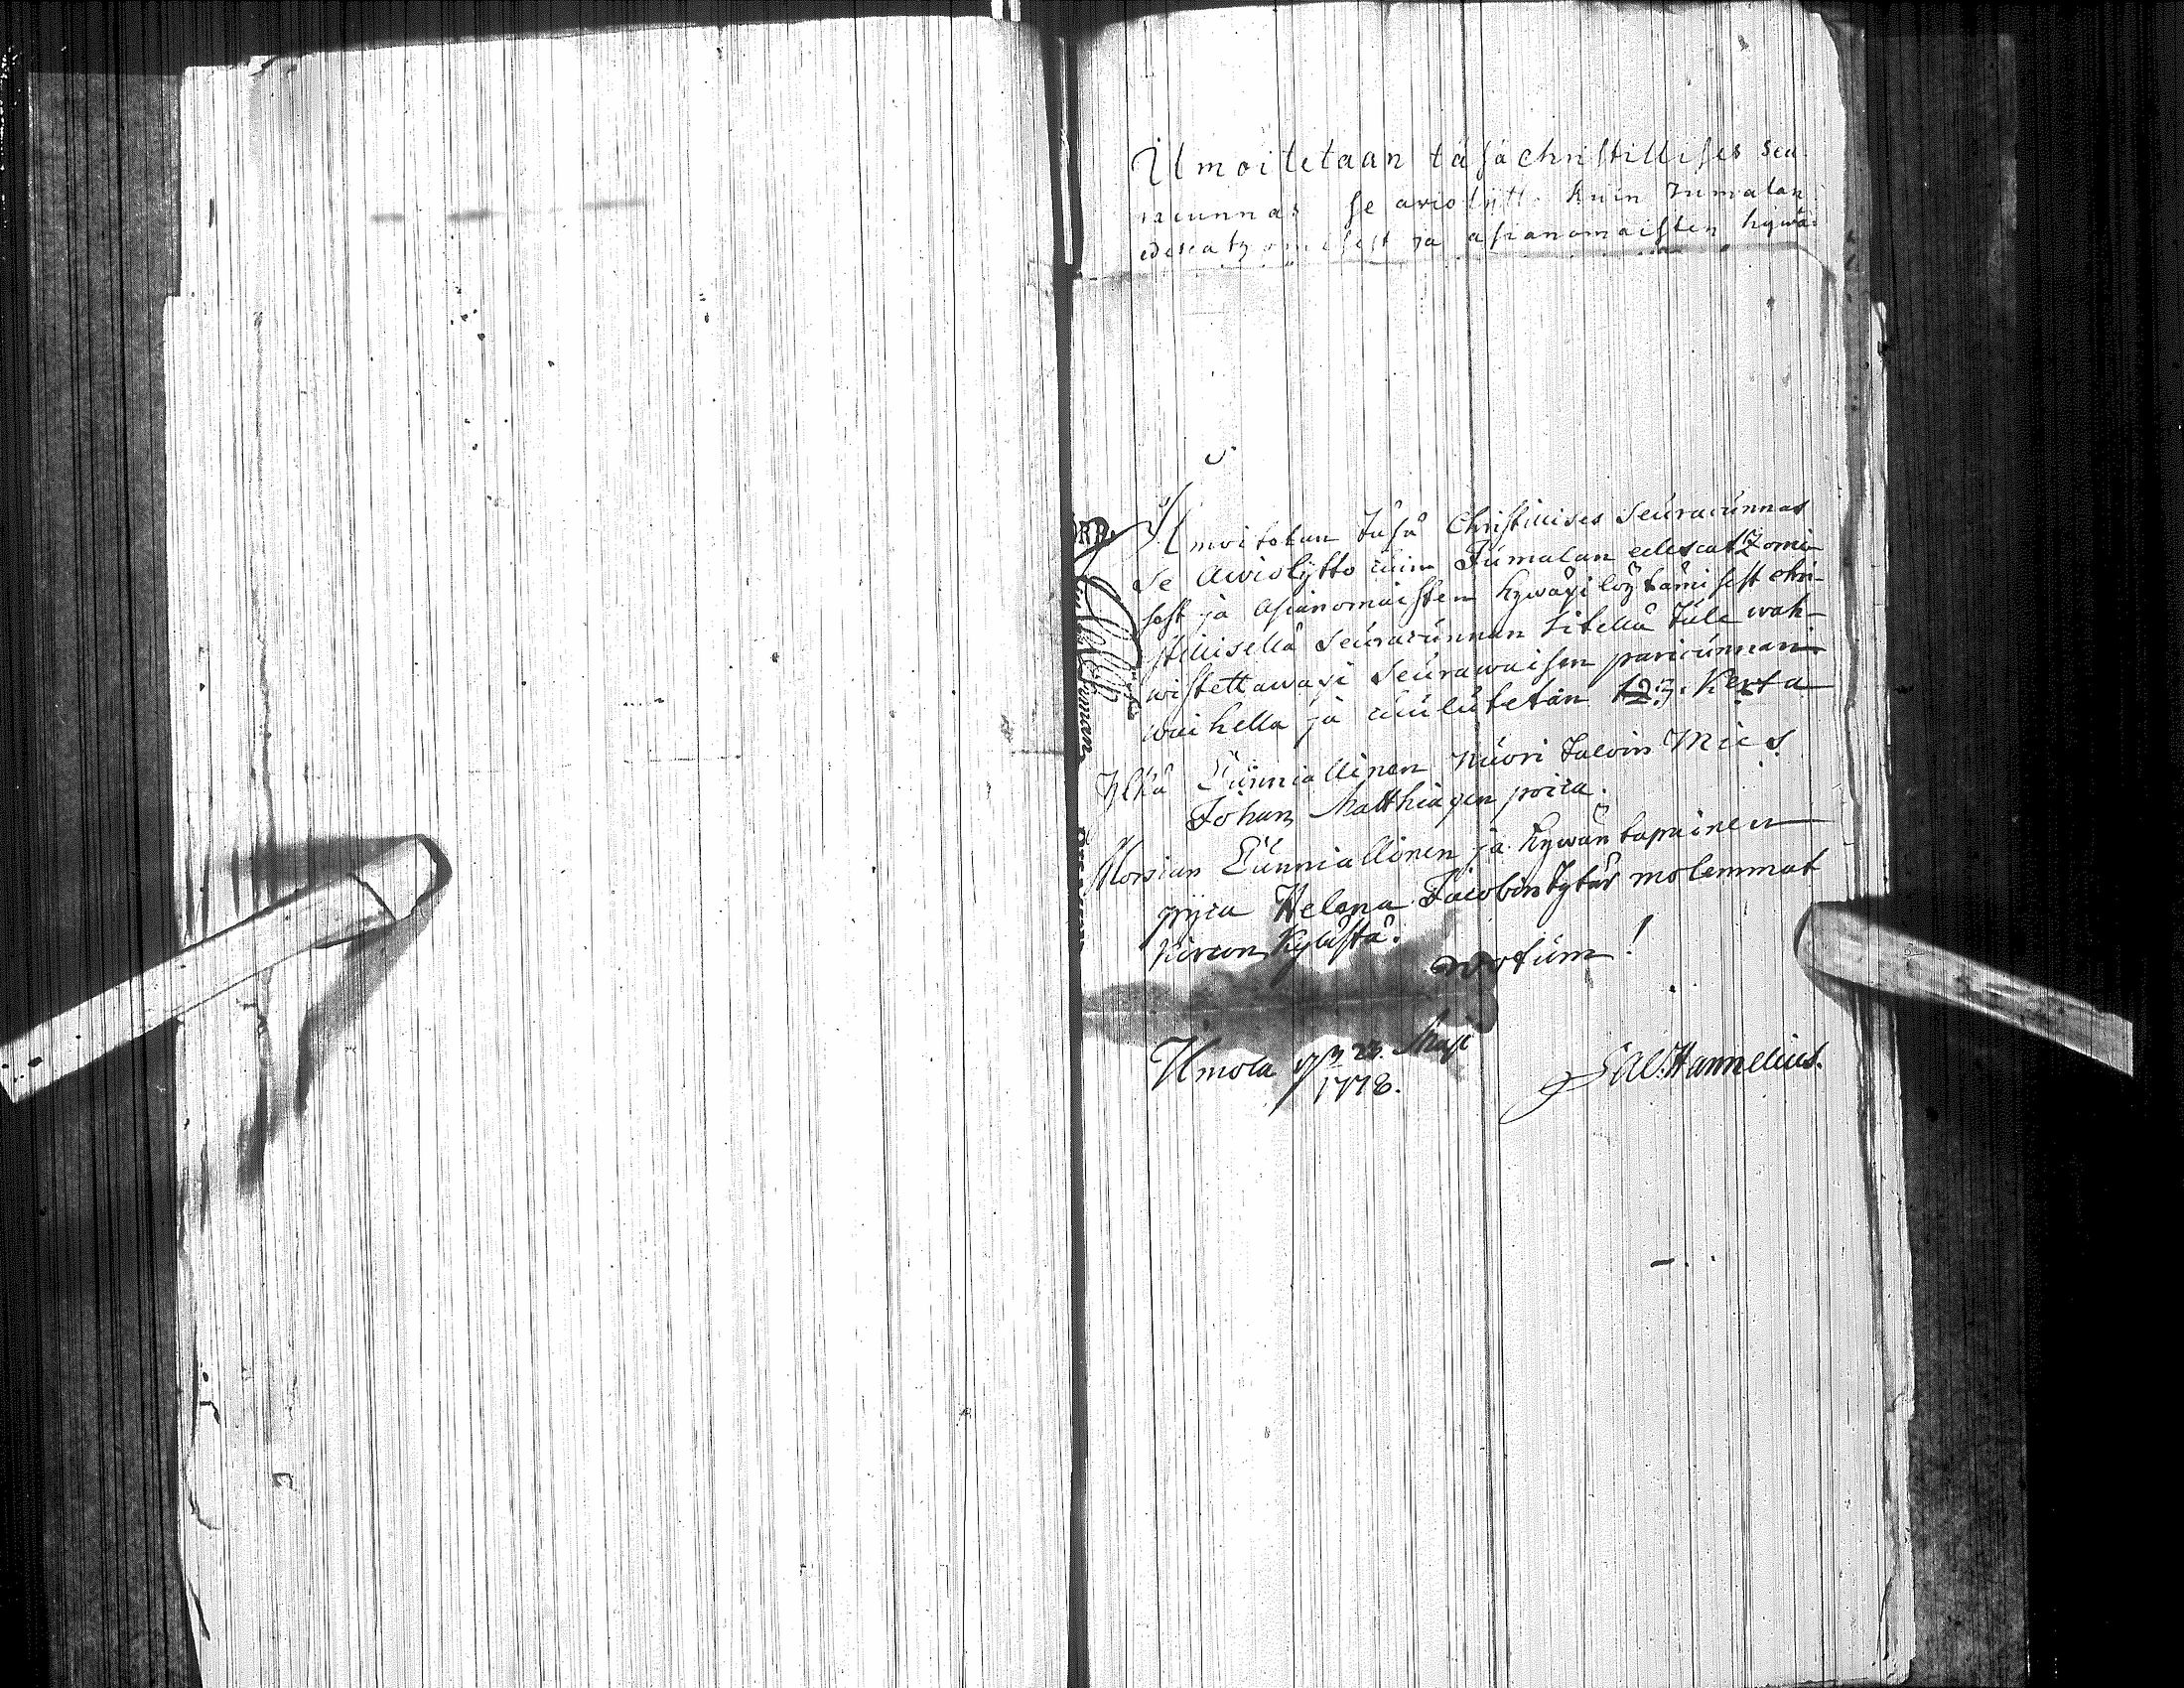 Ilmoitetaan täsä christillises seu
racunnas se aviolijtto kuin Jumalan
edescatzomisest ja asianomaisten hywä
Ilmoitetan täsä Christillises Seuracunnas
se Awiolijtto cuin Jumalan edescatzomi-
sest ja Asianomaisten hywäxi löytämisest chri-
stillisellä Seuracunnan sitellä tule wah-
wistettawaxi seurawaisen paricunnan
waihella ja cuulutetan 1 2 3. Kerta
Yljkä Cunniallinen Nuori talvin Mies
Johan Matthiaxen poica.
Morsian Cunniallinen ja hywäntapainen
pijca Helena Jacobin tytär molemmat
Kircon kylästä.
notum!
Ilmola d. 23. Maji
1778.
Sal. Hannelius.